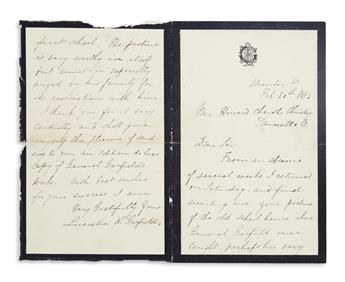 Mentor O.
Feb 20th
Mr Howard Chandler Christy
O.
Dear Sir
From an absence
of several weeks I returned
on Saturday, and first
greeting was your picture
of the old school home where
General Garfield once
taught, perhaps his very
first school. The picture
is very worthy in itself
but must be especially
prized by his family for
its association with him.
I thank you for it very
cordially and shall give
myself the pleasure of send
ing to you an edition de luxe
copy of General Garfield's
works. With best wishes
for your success I am
Very Gratefully Yours
Lucretia R. Garfield.